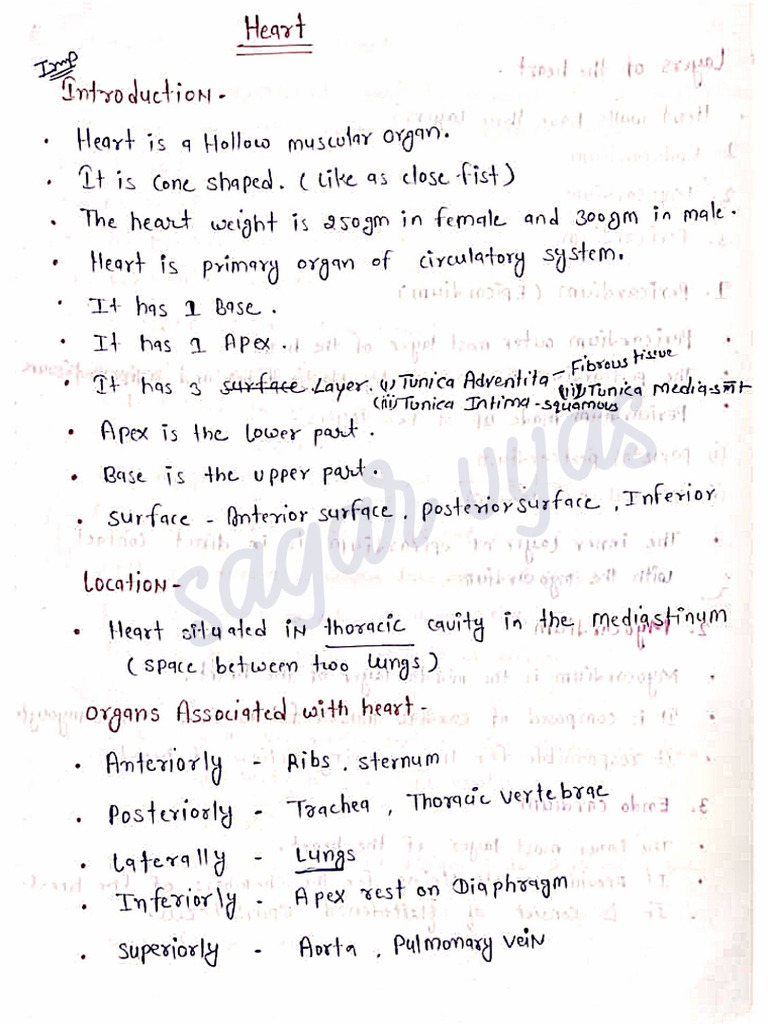 Heart
Imp
Introduction -
• Heart is a Hollow muscular organ.
• It is cone shaped. (like as close fist)
• The heart weight is 250gm in female and 300gm in male.
• Heart is primary organ of circulatory system.
• It has 1 Base.
• It has 1 Apex.
• It has 3 surface Layer. (i) Tunica Adventita - Fibrous tissue (ii) Tunica Media-
(iii) Tunica Intima - squamous
• Apex is the lower part.
• Base is the upper part.
• surface - Anterior surface, posterior surface, Inferior
Location -
• Heart situated in thoracic cavity in the mediastinum
(space between two lungs)
organs Associated with heart -
• Anteriorly - Ribs, sternum
• Posteriorly - Trachea, Thoracic vertebrae
• laterally - Lungs
• Inferiorly - Apex rest on Diaphragm
• superiorly - Aorta, Pulmonary vein
sagar vyas